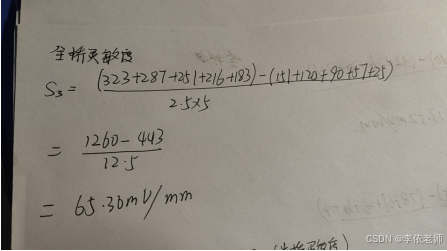 全桥灵敏度
S₃ = (323+287+251+216+183)-(151+120+90+57+25) / 2.5×5
= 1260-443 / 12.5
= 65.36mV/mm
CSDN @李依老师